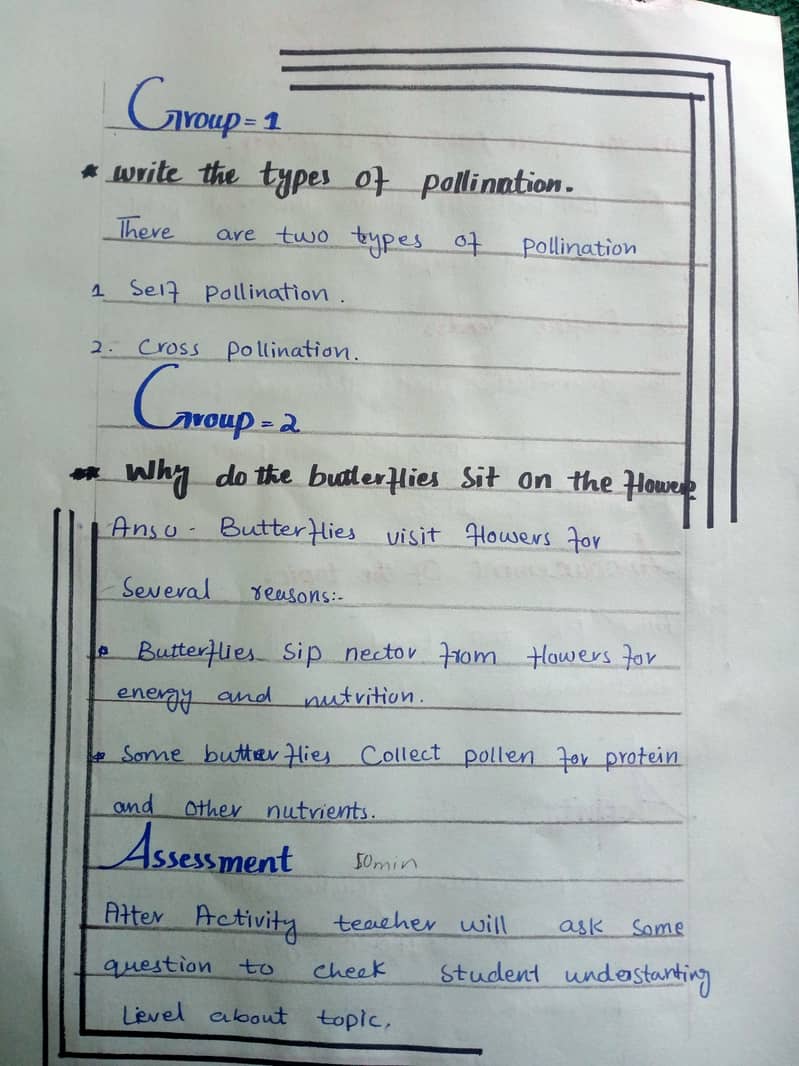 Group = 1
* write the types of pollination.
There are two types of pollination
1 Self pollination.
2. Cross pollination.
Group = 2
** Why do the butterflies sit on the flower
Anso - Butterflies visit flowers for
Several reasons:-
* Butterflies sip nector from flowers for
energy and nutrition.
* Some butterflies Collect pollen for protein
and other nutrients.
Assessment 50min
After Activity teacher will ask some
question to cheek student understanting
Lievel about topic.